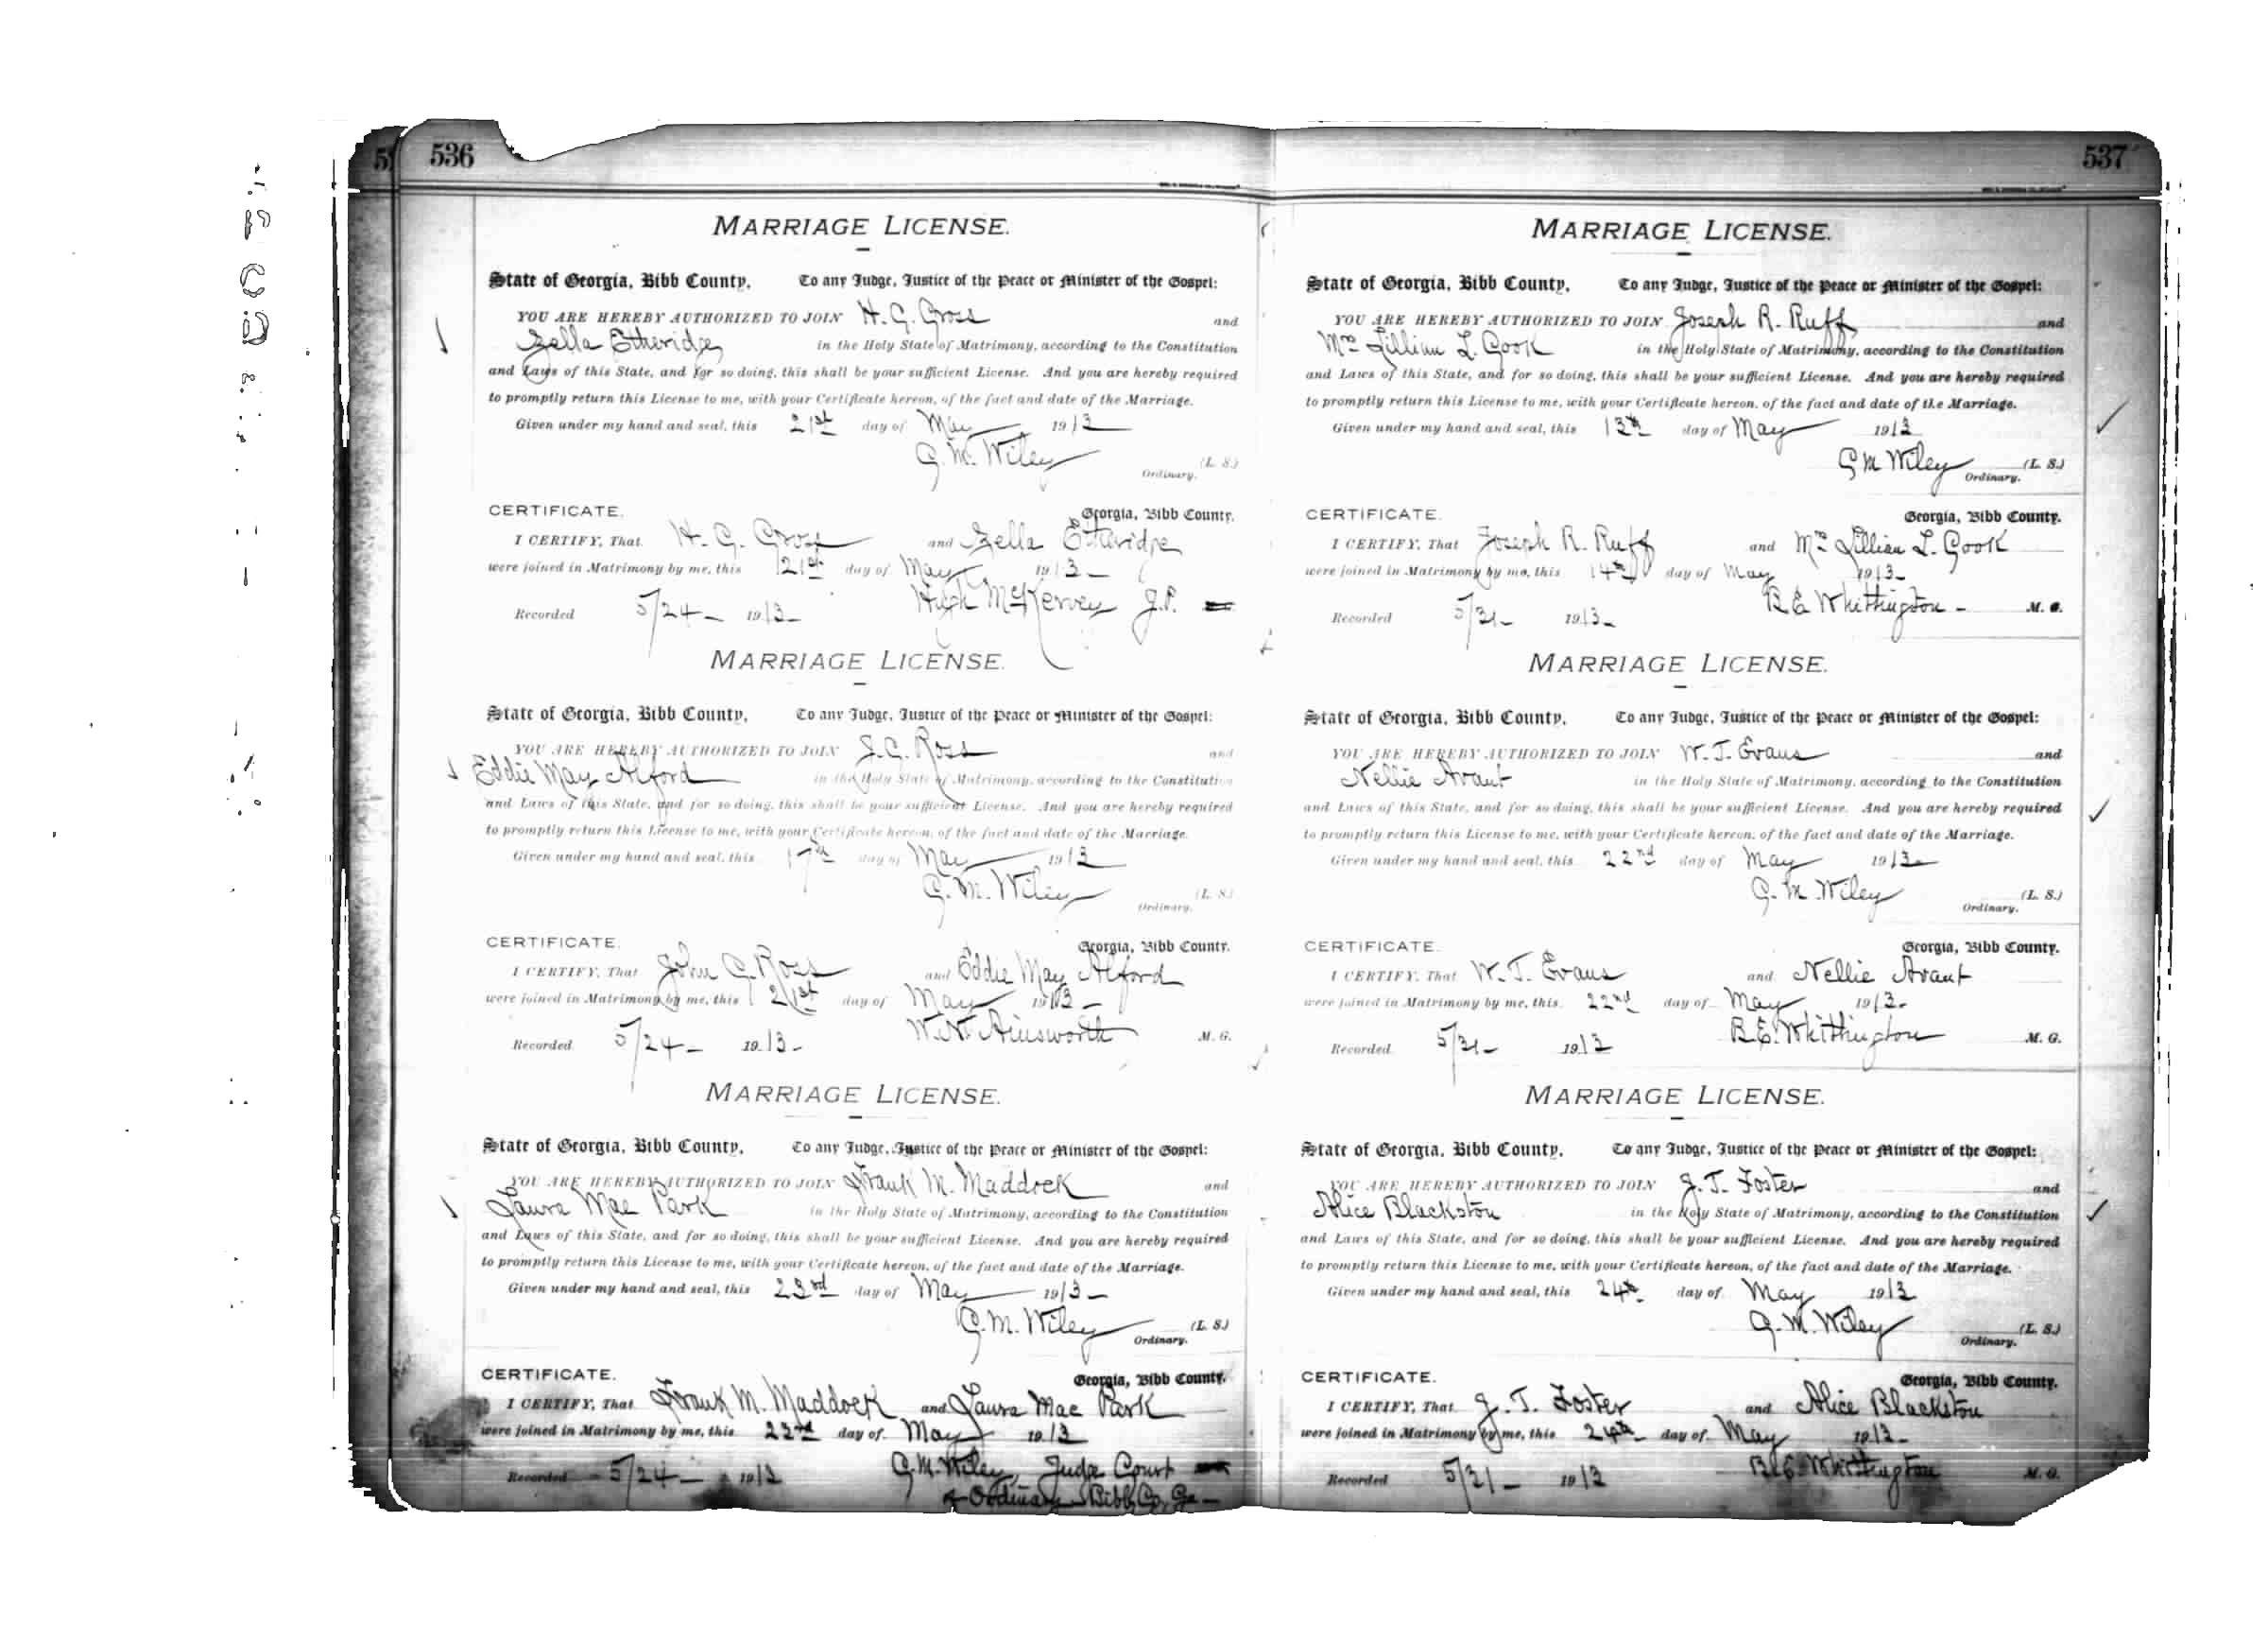 536
MARRIAGE LICENSE.
State of Georgia, Bibb County, To any Judge, Justice of the Peace or Minister of the Gospel:
YOU ARE HEREBY AUTHORIZED TO JOIN H. G. Gross and
Zella Etheridge in the Holy State of Matrimony, according to the Constitution
and Laws of this State, and for so doing, this shall be your sufficient License. And you are hereby required
to promptly return this License to me, with your Certificate hereon, of the fact and date of the Marriage.
Given under my hand and seal, this 21st day of May 1913
G. M. Wiley (L. S.)
Ordinary.
CERTIFICATE. Georgia, Bibb County.
I CERTIFY, That H. G. Gross and Zella Etheridge
were joined in Matrimony by me, this 21st day of May 1913
Recorded 5/24 1913 Hugh McKervey J.P.
MARRIAGE LICENSE.
State of Georgia, Bibb County, To any Judge, Justice of the Peace or Minister of the Gospel:
YOU ARE HEREBY AUTHORIZED TO JOIN J. C. Ross and
Eddie May Alford in the Holy State of Matrimony, according to the Constitution
and Laws of this State, and for so doing, this shall be your sufficient License. And you are hereby required
to promptly return this License to me, with your Certificate hereon, of the fact and date of the Marriage.
Given under my hand and seal, this 17th day of May 1913
G. M. Wiley (L. S.)
Ordinary.
CERTIFICATE. Georgia, Bibb County.
I CERTIFY, That John C. Ross and Eddie May Alford
were joined in Matrimony by me, this 21st day of May 1913
Recorded 5/24 1913 W. N. Ainsworth M. G.
MARRIAGE LICENSE.
State of Georgia, Bibb County, To any Judge, Justice of the Peace or Minister of the Gospel:
YOU ARE HEREBY AUTHORIZED TO JOIN Frank M. Maddock and
Laura Mae Park in the Holy State of Matrimony, according to the Constitution
and Laws of this State, and for so doing, this shall be your sufficient License. And you are hereby required
to promptly return this License to me, with your Certificate hereon, of the fact and date of the Marriage.
Given under my hand and seal, this 23rd day of May 1913
G. M. Wiley (L. S.)
Ordinary.
CERTIFICATE. Georgia, Bibb County.
I CERTIFY, That Frank M. Maddock and Laura Mae Park
were joined in Matrimony by me, this 23rd day of May 1913
Recorded 5/24 1913 G. M. Wiley, Judge Court
of Ordinary Bibb Co, Ga
537
MARRIAGE LICENSE.
State of Georgia, Bibb County, To any Judge, Justice of the Peace or Minister of the Gospel:
YOU ARE HEREBY AUTHORIZED TO JOIN Joseph R. Ruff and
Mrs Lillian L. Cook in the Holy State of Matrimony, according to the Constitution
and Laws of this State, and for so doing, this shall be your sufficient License. And you are hereby required
to promptly return this License to me, with your Certificate hereon, of the fact and date of the Marriage.
Given under my hand and seal, this 13th day of May 1913
G M Wiley (L. S.)
Ordinary.
CERTIFICATE. Georgia, Bibb County.
I CERTIFY, That Joseph R. Ruff and Mrs Lillian L. Cook
were joined in Matrimony by me, this 14th day of May 1913
Recorded 5/31 1913 B E Whittington M. G.
MARRIAGE LICENSE.
State of Georgia, Bibb County, To any Judge, Justice of the Peace or Minister of the Gospel:
YOU ARE HEREBY AUTHORIZED TO JOIN W. T. Evans and
Nellie Avant in the Holy State of Matrimony, according to the Constitution
and Laws of this State, and for so doing, this shall be your sufficient License. And you are hereby required
to promptly return this License to me, with your Certificate hereon, of the fact and date of the Marriage.
Given under my hand and seal, this 22nd day of May 1913
G. M. Wiley (L. S.)
Ordinary.
CERTIFICATE. Georgia, Bibb County.
I CERTIFY, That W. T. Evans and Nellie Avant
were joined in Matrimony by me, this 22nd day of May 1913
Recorded 5/31 1913 B. E. Whittington M. G.
MARRIAGE LICENSE.
State of Georgia, Bibb County, To any Judge, Justice of the Peace or Minister of the Gospel:
YOU ARE HEREBY AUTHORIZED TO JOIN J. T. Foster and
Alice Blackston in the Holy State of Matrimony, according to the Constitution
and Laws of this State, and for so doing, this shall be your sufficient License. And you are hereby required
to promptly return this License to me, with your Certificate hereon, of the fact and date of the Marriage.
Given under my hand and seal, this 24th day of May 1913
G. M. Wiley (L. S.)
Ordinary.
CERTIFICATE. Georgia, Bibb County.
I CERTIFY, That J. T. Foster and Alice Blackston
were joined in Matrimony by me, this 24th day of May 1913
Recorded 5/31 1913 B. E. Whittington M. G.